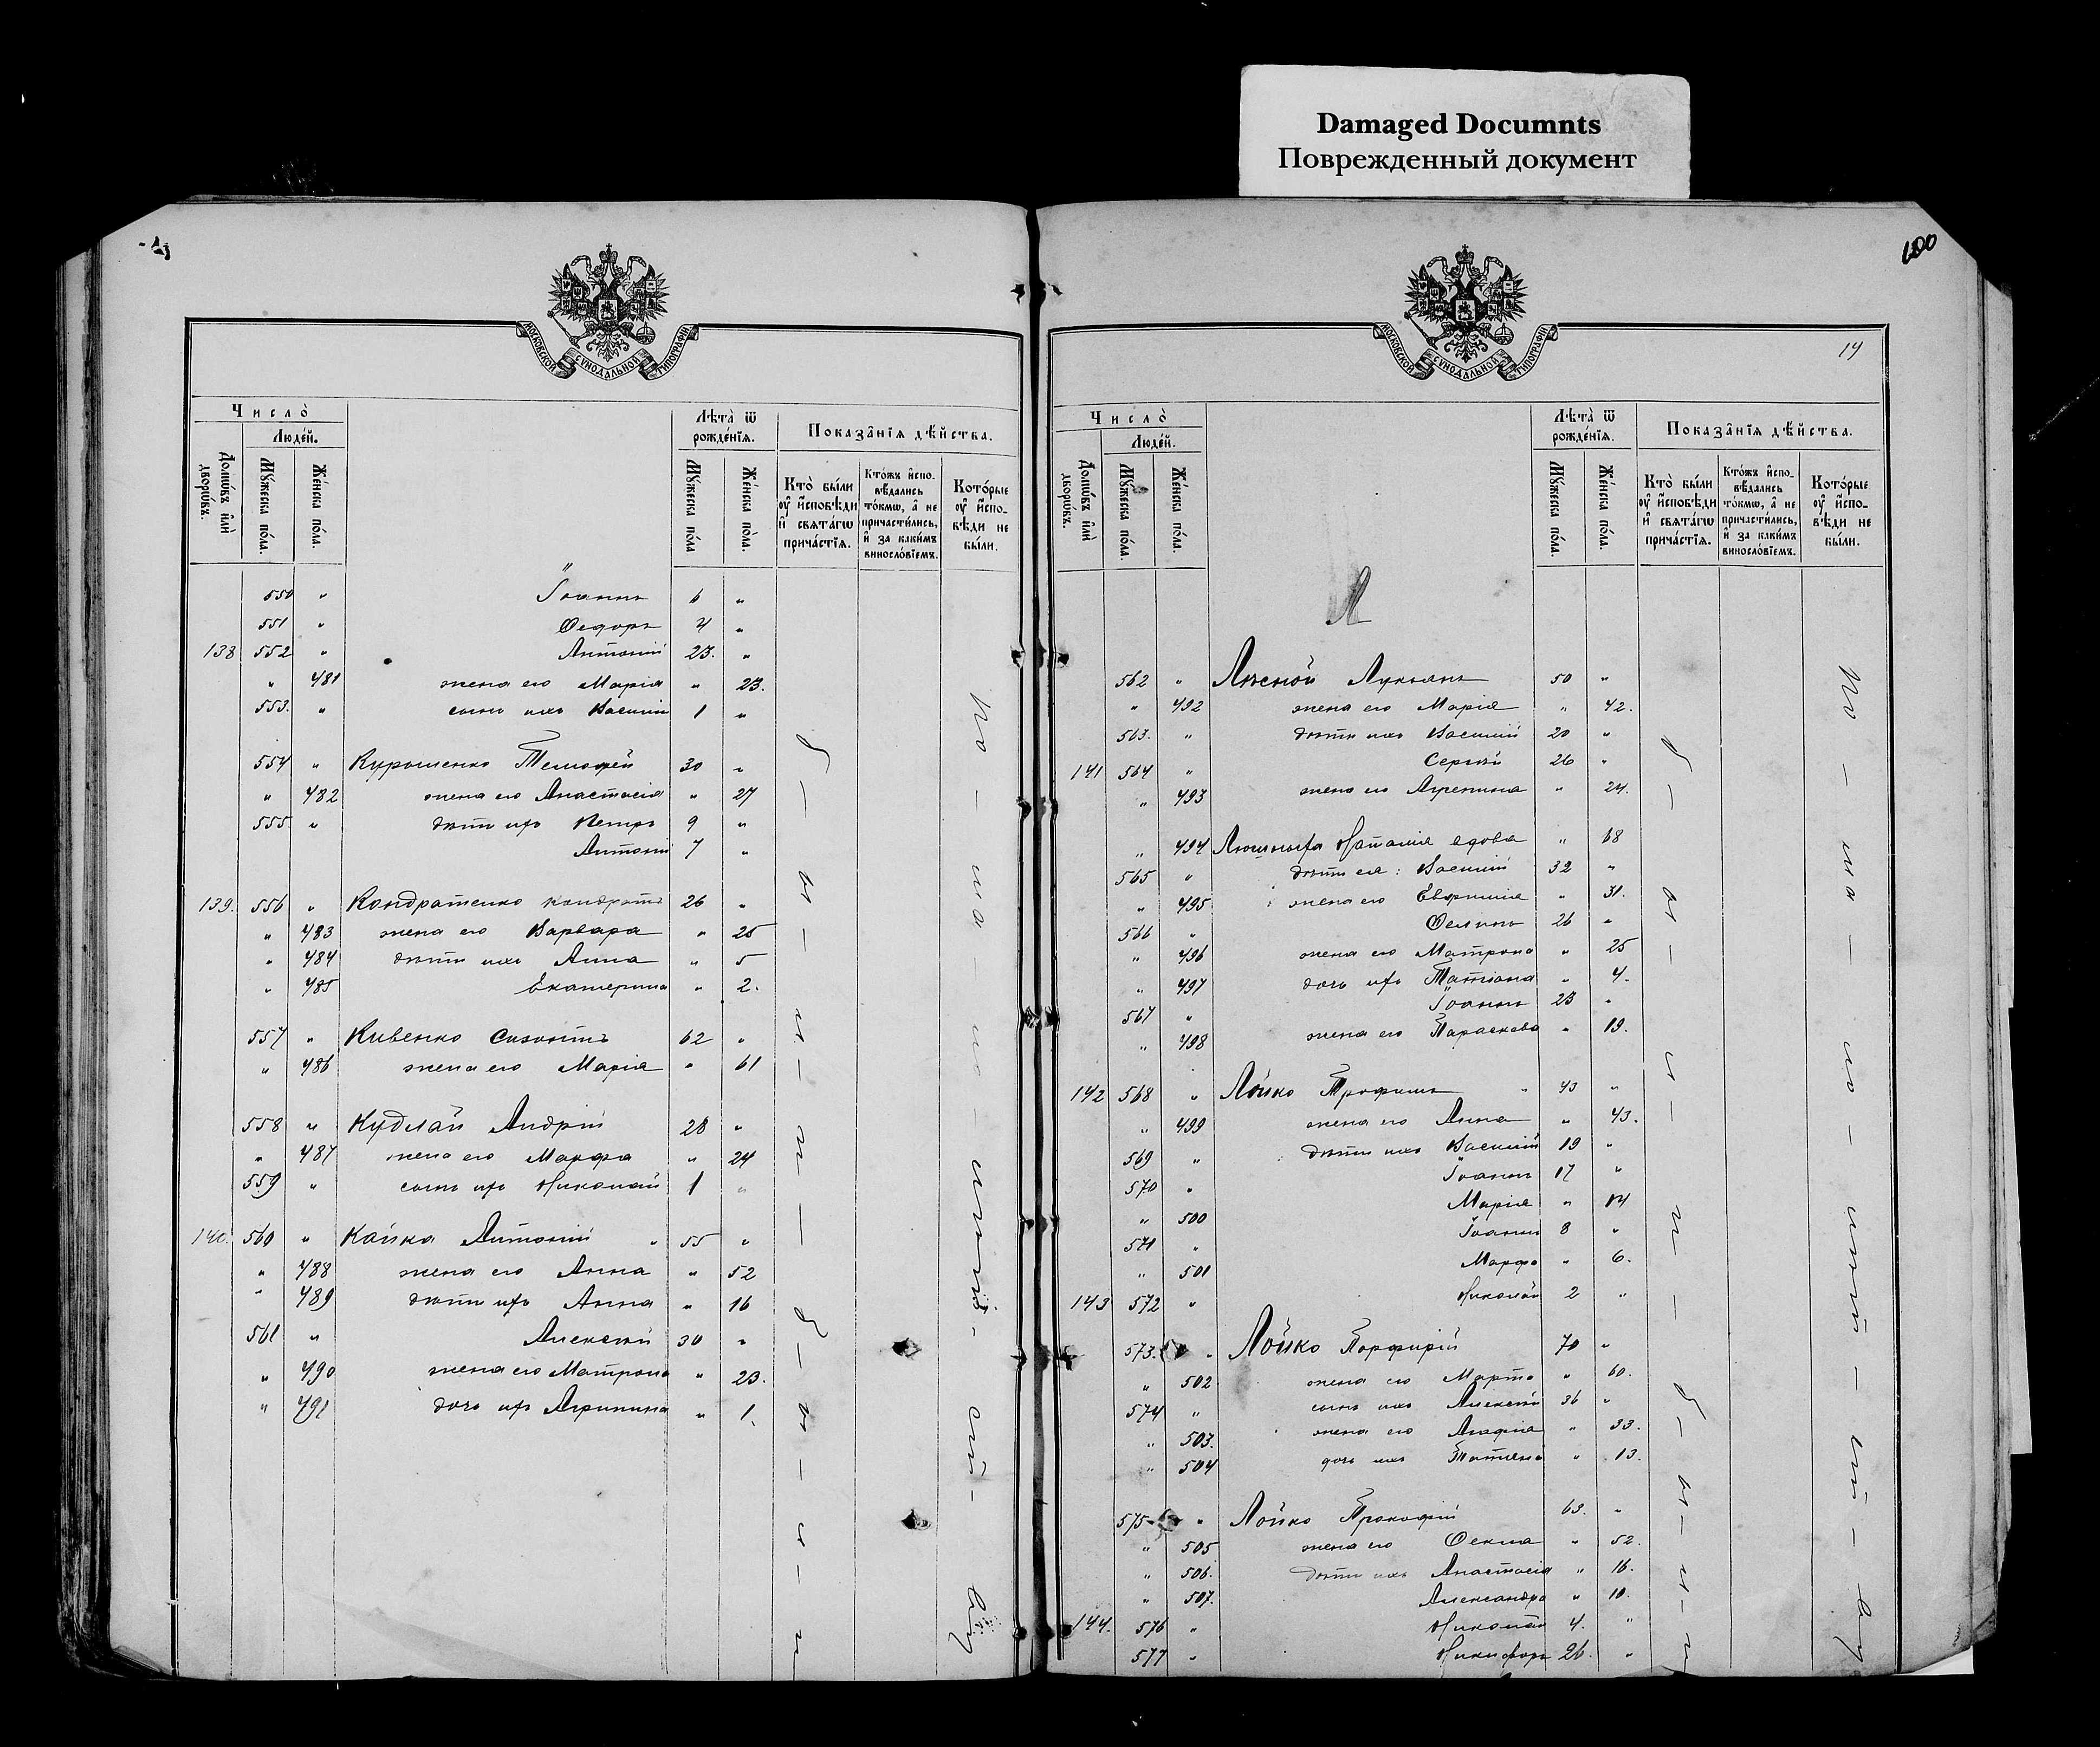 Damaged Documnts
Поврежденный документ
100
МОСКОВСКОЙ СУНОДАЛЬНОЙ ТИПОГРАФІИ
Число̀
Люде́й.
Домѡ́въ и҆лѝ дворѡ́въ.
Мꙋ́жеска по́ла.
Же́нска по́ла.
Лѣ́та ѿ рожде́нїѧ.
Мꙋ́жеска по́ла
Же́нска по́ла.
Показа̑нїѧ дѣ́йства.
Кто̀ бы́ли ᲂу҆ и҆сповѣ́ди и҆ свѧта́гѡ прича́стїѧ.
Кто́жъ и҆спо- вѣ́дались то́кмѡ, а҆ не причасти́лись, и҆ за каки́мъ винословїемъ.
Кото́рые ᲂу҆ и҆спо- вѣ́ди не бы́ли.
550 " Іоаннъ 6 "
551 " Ѳедоръ 4 "
138 552 " Антоній 23. "
" 481 жена его Марія " 23.
553. " сынъ ихъ Василій 1 "
554 " Курошенко Тимофей 30 "
" 482 жена его Анастасія " 27
555. " дѣти ихъ Петръ 9 "
Антоній 7 "
139. 556 " Кондратенко Кондратъ 26 "
" 483 жена его Варвара " 25
" 484 дѣти ихъ Анна " 5
" 485 Екатерина " 2.
557 " Кивенко Сизонтъ 62 "
" 486 жена его Марія " 61
558 " Кудлай Андрій 28 "
" 487 жена его Марфа " 24
559 " сынъ ихъ Николай 1 "
140. 560 " Кайка Антоній 55 "
" 488 жена его Анна " 52
" 489 дѣти ихъ Анна " 16
561 " Алексѣй 30 "
" 490 жена его Матрона " 23.
" 491 дочь ихъ Агрипина " 1.
МОСКОВСКОЙ СУНОДАЛЬНОЙ ТИПОГРАФІИ
Число̀
Люде́й.
Домѡ́въ и҆лѝ дворѡ́въ.
Мꙋ́жеска по́ла.
Же́нска по́ла.
Лѣ́та ѿ рожде́нїѧ.
Мꙋ́жеска по́ла.
Же́нска по́ла.
Показа̑нїѧ дѣ́йства.
Кто̀ бы́ли ᲂу҆ и҆сповѣ́ди и҆ свѧта́гѡ прича́стїѧ.
Кто́жъ и҆спо- вѣ́дались то́кмѡ, а҆ не причасти́лись, и҆ за каки́мъ винословїемъ.
Кото́рые ᲂу҆ и҆спо- вѣ́ди не бы́ли.
Л
562 " Лѣсной Лукьянъ 50 "
" 492 жена его Марія " 42.
563. " дѣти ихъ Василій 20 "
141 564 " Сергій 26 "
" 493 жена его Агрепина " 24.
" 494 Наталія вдова " 68
565 " дѣти ея: Василій 32 "
" 495 жена его Евфимія " 31.
566 " 26 "
" 496 жена его Матрона " 25
" 497 дочь ихъ Татіана " 4.
567 " Іоаннъ 23 "
" 498 жена его Параскева " 19.
142 568 " Лойко Трофимъ 43 "
" 499 жена его Анна " 43.
569 " дѣти ихъ Василій 19 "
570 " Іоаннъ 17 "
" 500 Марія " 14
571 " Іоаннъ 8 "
" 501 Марфа " 6.
143 572 " Николай 2 "
573. " Лойко Порфирій 70 "
" 502 жена его Марта " 60.
574 " сынъ ихъ Алексѣй 36 "
" 503. жена его Агафія " 33.
" 504 дочь ихъ Татіана " 13.
575 " Лойко Прокофій 63. "
" 505 жена его Ѳекла " 52.
" 506. дѣти ихъ Анастасія " 16.
" 507. Александра " 10.
144. 576 " Николай 4. "
577 " Никифоръ 26. "